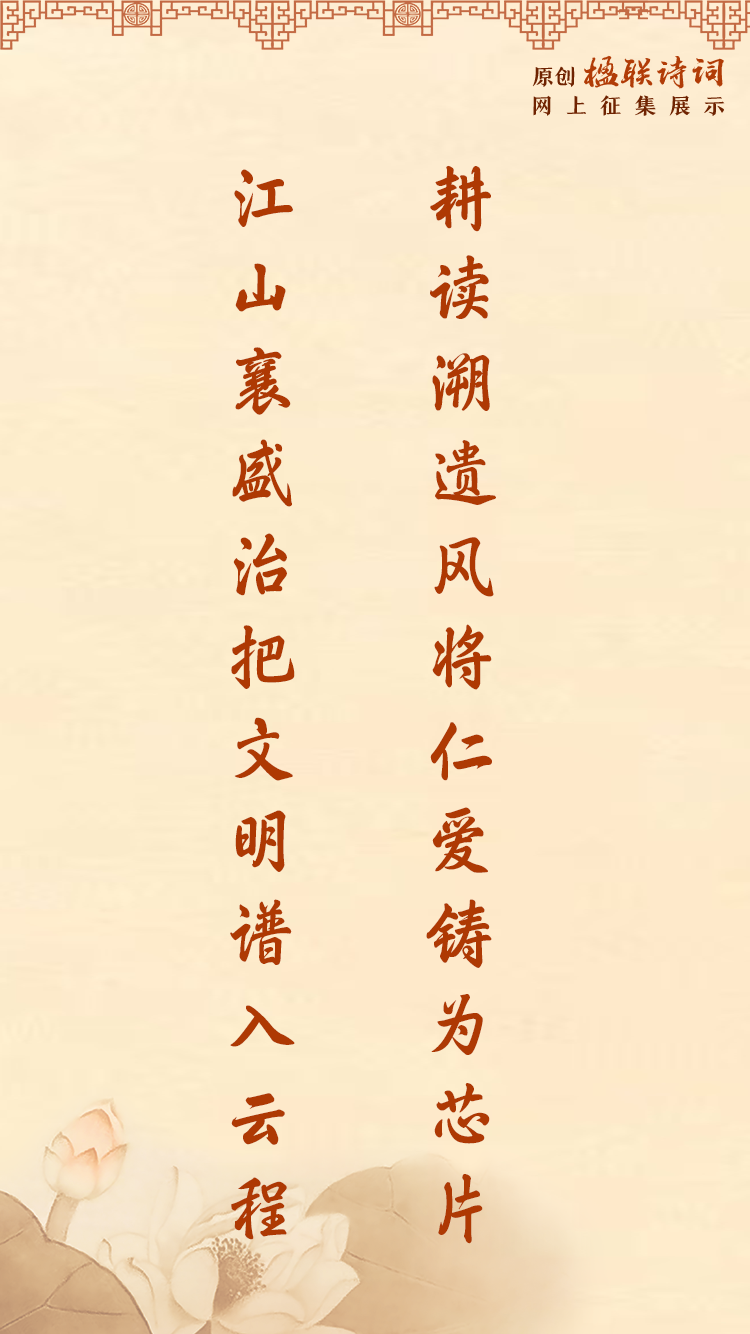 原创 楹联诗词
网上征集展示
耕读溯遗风将仁爱铸为芯片
江山襄盛治把文明谱入云程